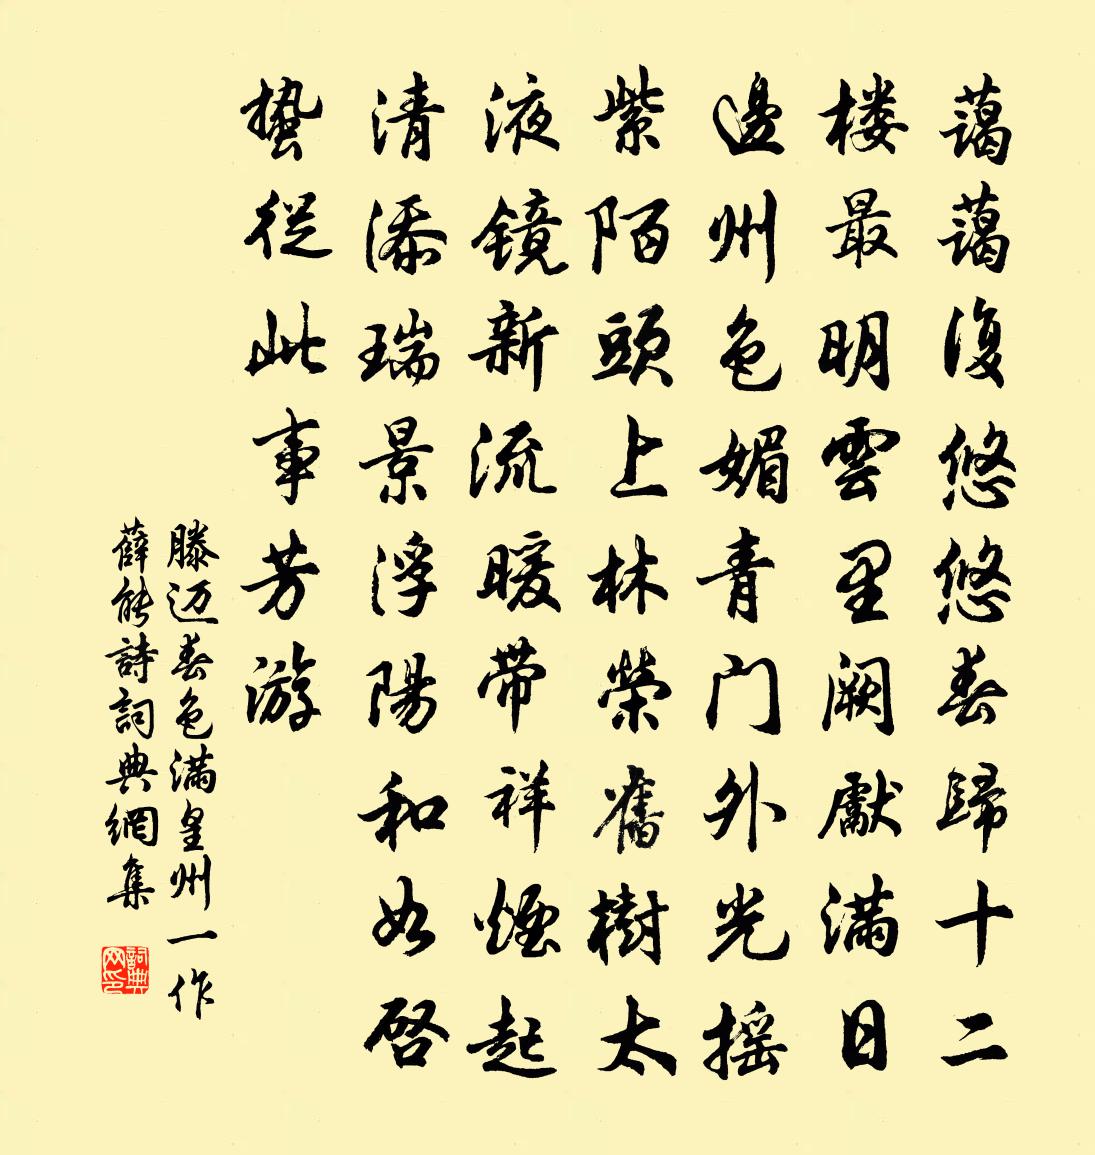 藹藹復悠悠春歸十二
楼最明雲里阙獻满日
邊州色媚青门外光摇
紫陌頭上林榮舊樹太
液镜新流暖带祥煙起
清添瑞景浮陽和如啓
蛰從此事芳游
滕迈春色满皇州一作
薛能詩詞典網集
詞典网印